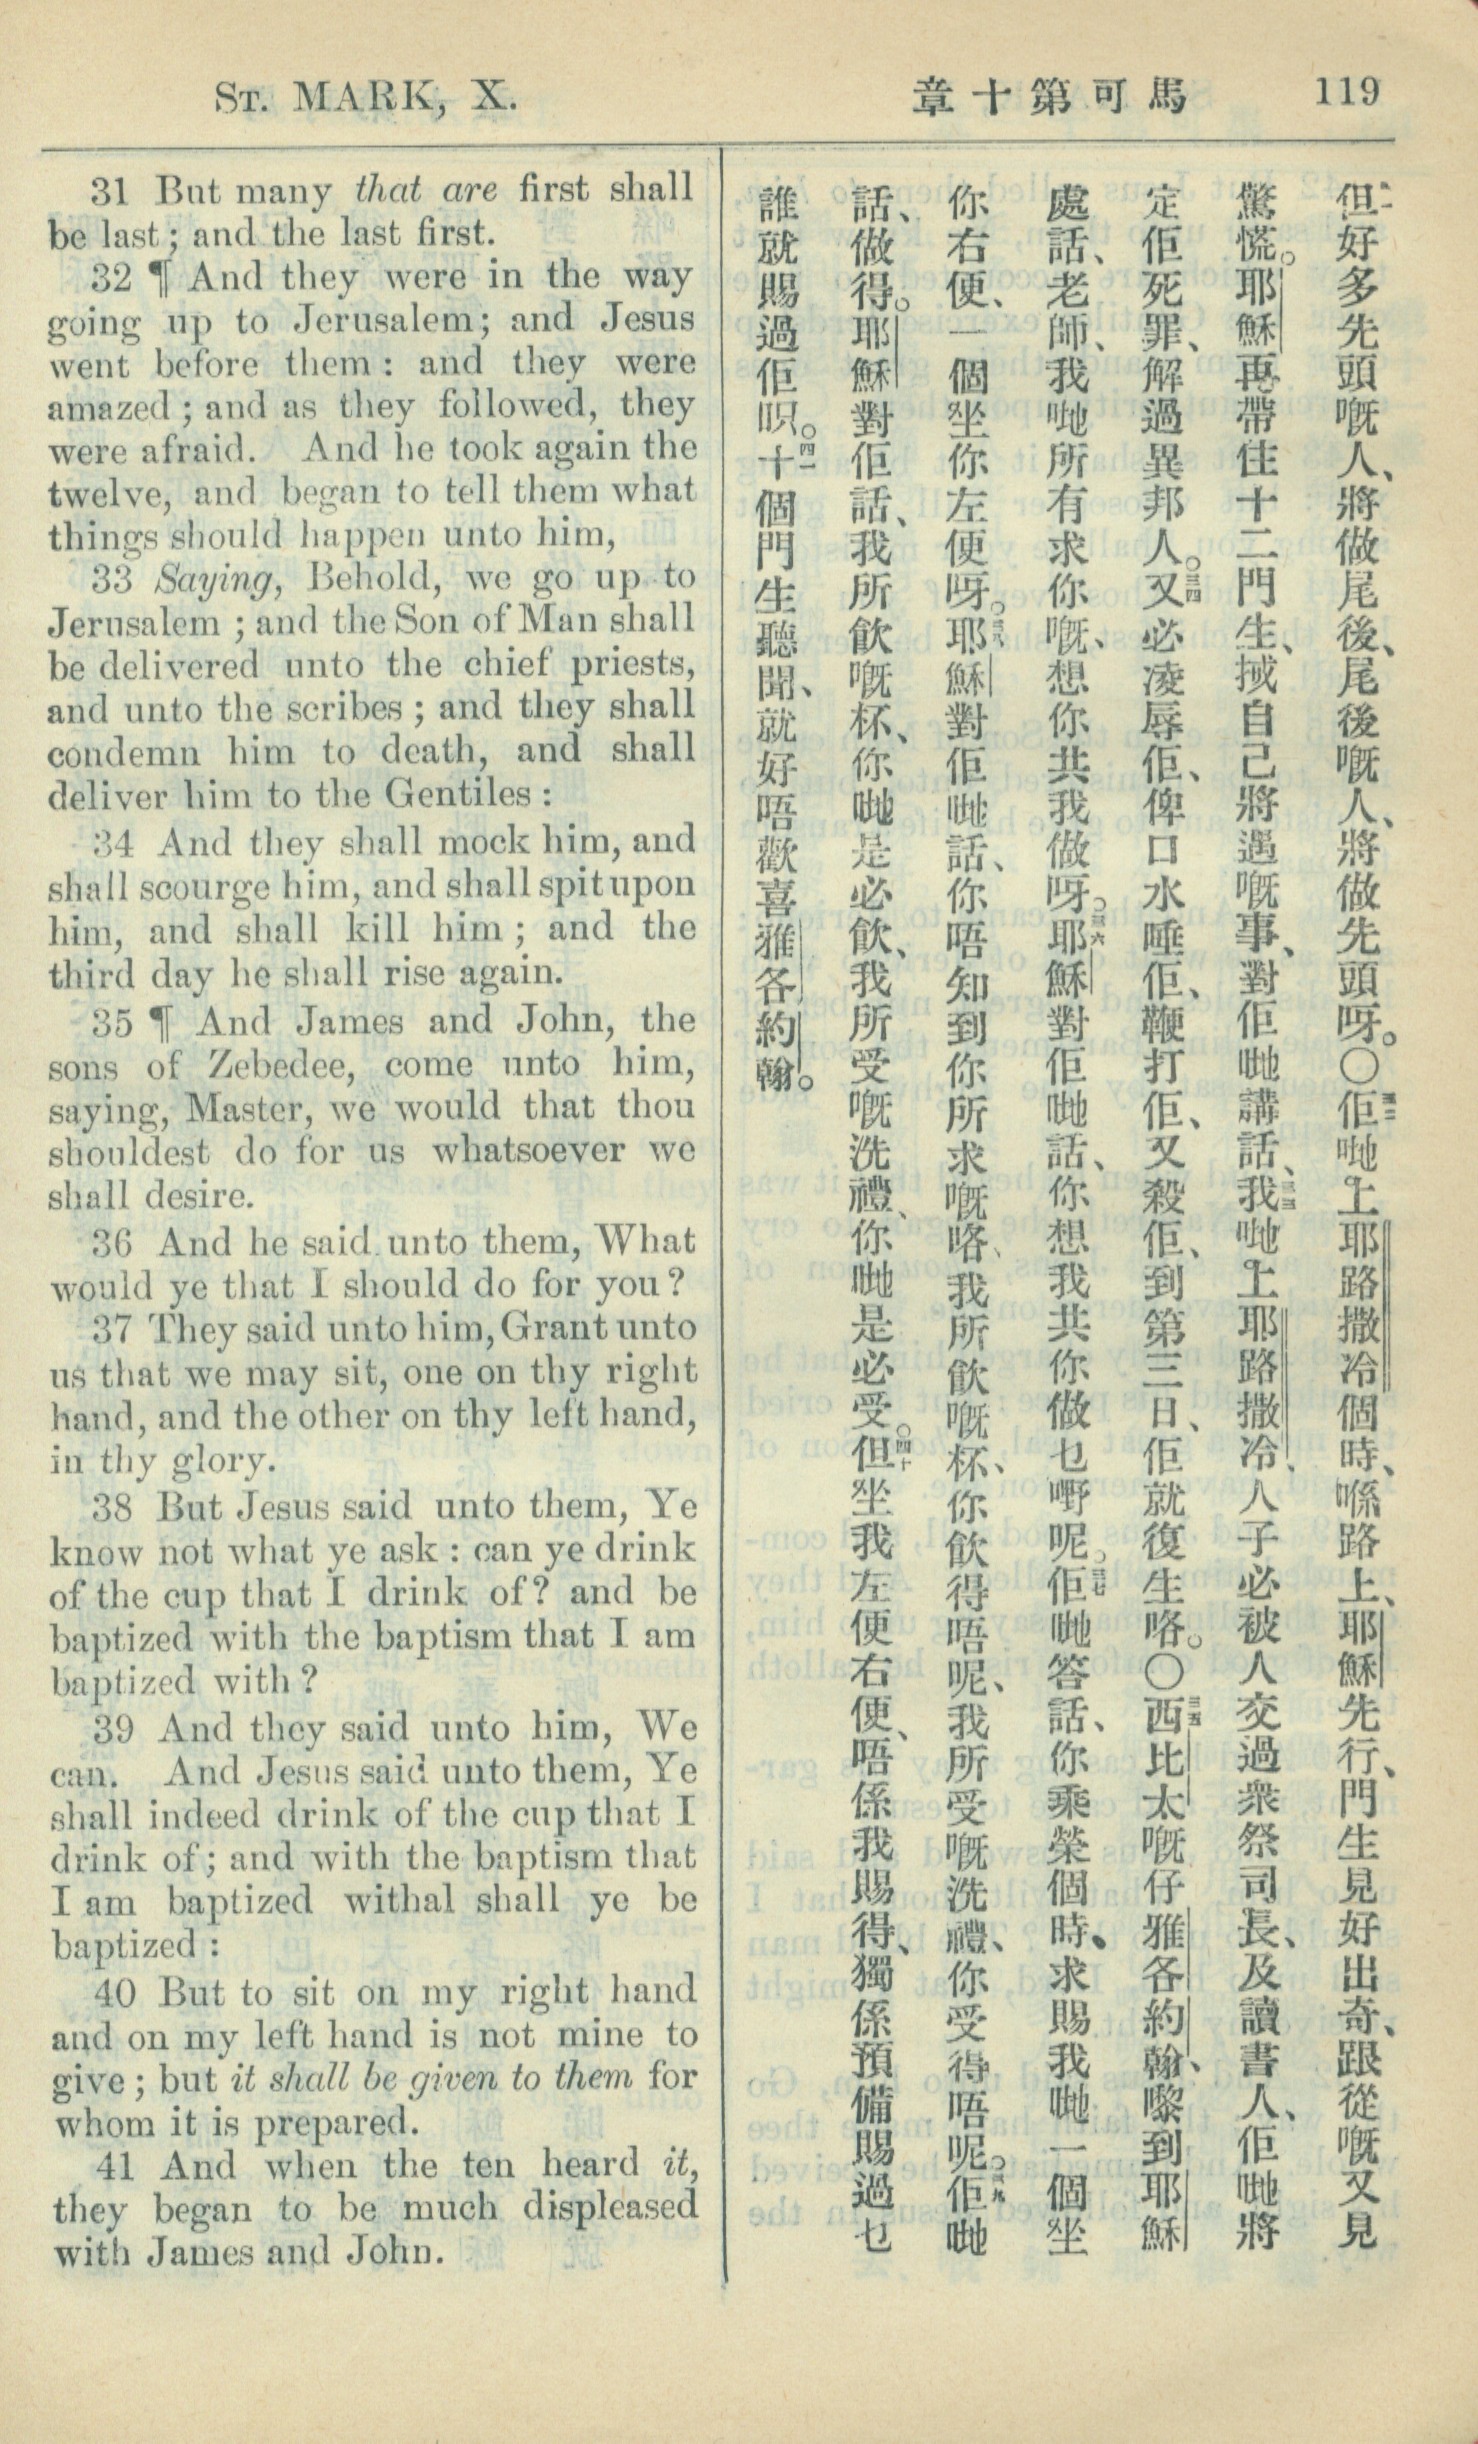 St. MARK, X.
馬可第十章
119
31 But many that are first shall
be last; and the last first.
32 ¶ And they were in the way
going up to Jerusalem; and Jesus
went before them: and they were
amazed; and as they followed, they
were afraid. And he took again the
twelve, and began to tell them what
things should happen unto him,
33 Saying, Behold, we go up to
Jerusalem; and the Son of Man shall
be delivered unto the chief priests,
and unto the scribes; and they shall
condemn him to death, and shall
deliver him to the Gentiles:
34 And they shall mock him, and
shall scourge him, and shall spit upon
him, and shall kill him; and the
third day he shall rise again.
35 ¶ And James and John, the
sons of Zebedee, come unto him,
saying, Master, we would that thou
shouldest do for us whatsoever we
shall desire.
36 And he said unto them, What
would ye that I should do for you?
37 They said unto him, Grant unto
us that we may sit, one on thy right
hand, and the other on thy left hand,
in thy glory.
38 But Jesus said unto them, Ye
know not what ye ask: can ye drink
of the cup that I drink of? and be
baptized with the baptism that I am
baptized with?
39 And they said unto him, We
can. And Jesus said unto them, Ye
shall indeed drink of the cup that I
drink of; and with the baptism that
I am baptized withal shall ye be
baptized:
40 But to sit on my right hand
and on my left hand is not mine to
give; but it shall be given to them for
whom it is prepared.
41 And when the ten heard it,
they began to be much displeased
with James and John.
但好多先頭嘅人、將做尾後、尾後嘅人、將做先頭呀。〇三二佢哋上耶路撒冷個時、喺路上、耶穌先行、門生見好出奇、跟從嘅又見
驚慌。耶穌再帶住十二門生、𢬿自己將遇嘅事、對佢哋講話、三三我哋上耶路撒冷、人子必被人交過衆祭司長、及讀書人、佢哋將
定佢死罪、解過異邦人。三四又必凌辱佢、俾口水唾佢、鞭打佢、又殺佢、到第三日、佢就復生咯。〇三五西比太嘅仔雅各約翰、嚟到耶穌
處話、老師、我哋所有求你嘅、想你共我做呀。三六耶穌對佢哋話、你想我共你做乜嘢呢。三七佢哋答話、你乘榮個時、求賜我哋一個坐
你右便、一個坐你左便呀。三八耶穌對佢哋話、你唔知到你所求嘅咯、我所飲嘅杯、你飲得唔呢、我所受嘅洗禮、你受得唔呢。三九佢哋
話、做得。耶穌對佢話、我所飲嘅杯、你哋是必飲、我所受嘅洗禮、你哋是必受。四十但坐我左便右便、唔係我賜得、獨係預備賜過乜
誰就賜過佢呮。四一十個門生聽聞、就好唔歡喜雅各約翰。